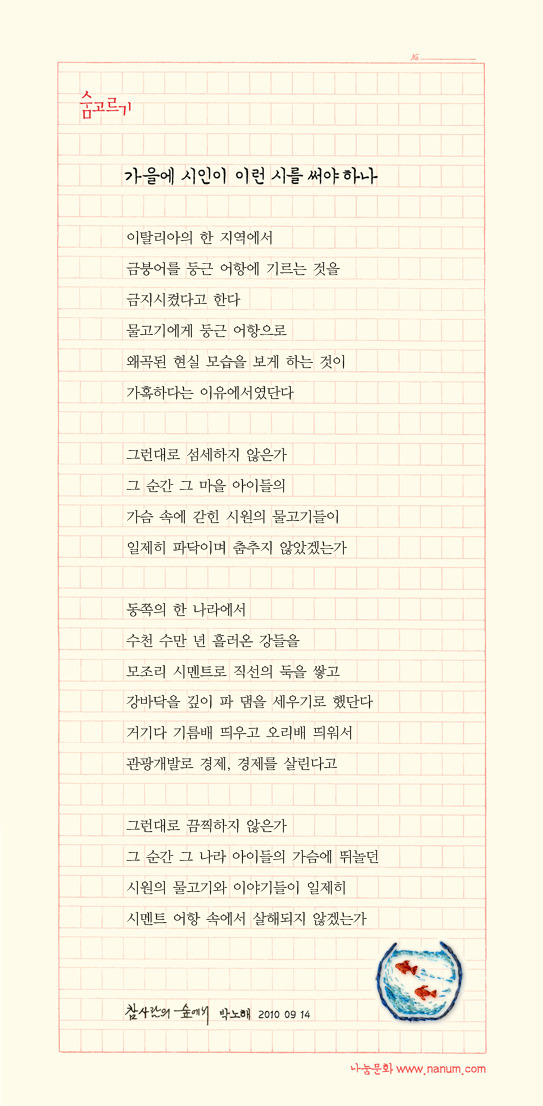 №
숨고르기
가을에 시인이 이런 시를 써야 하나
이탈리아의 한 지역에서
금붕어를 둥근 어항에 기르는 것을
금지시켰다고 한다
물고기에게 둥근 어항으로
왜곡된 현실 모습을 보게 하는 것이
가혹하다는 이유에서였단다
그런대로 섬세하지 않은가
그 순간 그 마을 아이들의
가슴 속에 갇힌 시원의 물고기들이
일제히 파닥이며 춤추지 않았겠는가
동쪽의 한 나라에서
수천 수만 년 흘러온 강들을
모조리 시멘트로 직선의 둑을 쌓고
강바닥을 깊이 파 댐을 세우기로 했단다
거기다 기름배 띄우고 오리배 띄워서
관광개발로 경제, 경제를 살린다고
그런대로 끔찍하지 않은가
그 순간 그 나라 아이들의 가슴에 뛰놀던
시원의 물고기와 이야기들이 일제히
시멘트 어항 속에서 살해되지 않겠는가
참사람의 숲에서 박노해 2010 09 14
나눔문화 www.nanum.com